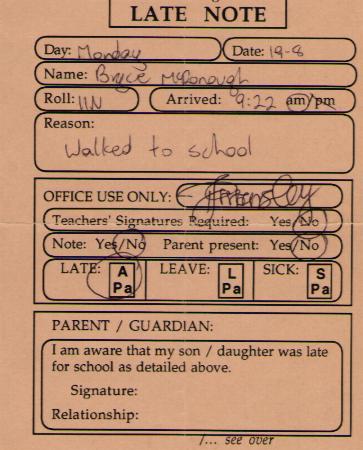 LATE NOTE
Day: Monday Date: 19-8
Name: Bryce McDonough
Roll: 11N Arrived: 9:22 am/pm
Reason:
Walked to school
OFFICE USE ONLY:
Teachers' Signatures Required: Yes/No
Note: Yes/No Parent present: Yes/No
LATE: A Pa LEAVE: L Pa SICK: S Pa
PARENT / GUARDIAN:
I am aware that my son / daughter was late
for school as detailed above.
Signature:
Relationship:
/... see over